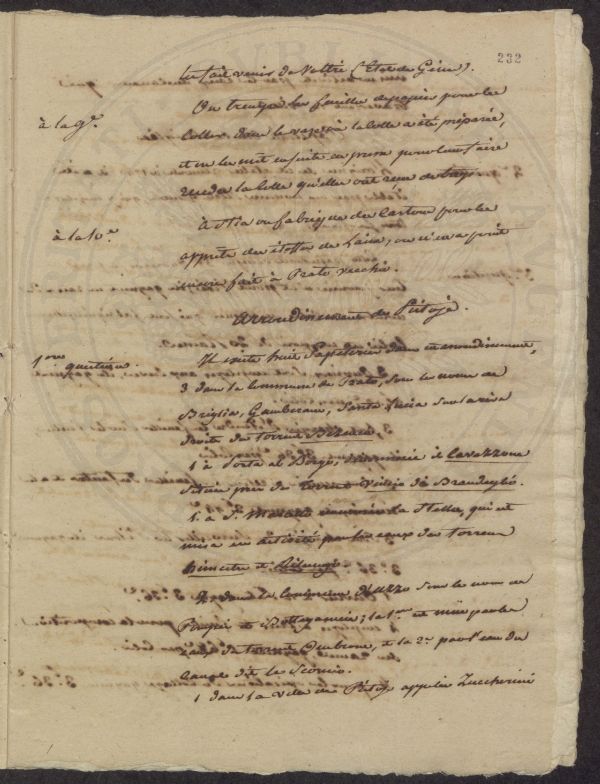 232
fait venir de Voltri (Etat de Gênes).
à la 9e.
On trempe les feuilles de papier pour les
coller dans le vase où la colle a été préparée,
et on les met ensuite en presse pour leur faire
rendre la colle qu'elles ont reçu de trop.
à la 10.e
À Stia on fabrique du Carton pour les
apprêts des étoffes de Laine, on n'en a point
encore fait à Prato vecchio.
Arrondissement de Pistoje.
1ere question.
Il existe huit Papeteries dans cet arrondissement,
3 dans la Commune de Prato, sous le nom de
Briglia, Gamberame, Santa Lucia sur la rive
droite du torrent Bisenzio,
1 à Porta al Borgo, dénommée il Cavazzone
située près du torrent Vincio di Brandeglio.
1. à St. dénommée La Stella, qui est
mise en activité par les eaux du torrent
et
2 dans la Commune sous le nom de
et la 1ere est mise par les
eaux du torrent Ombrone, et la 2e par l'eau du
canal dit le Scorcio.
1 dans la ville de Pistoje appelée Zuccherini